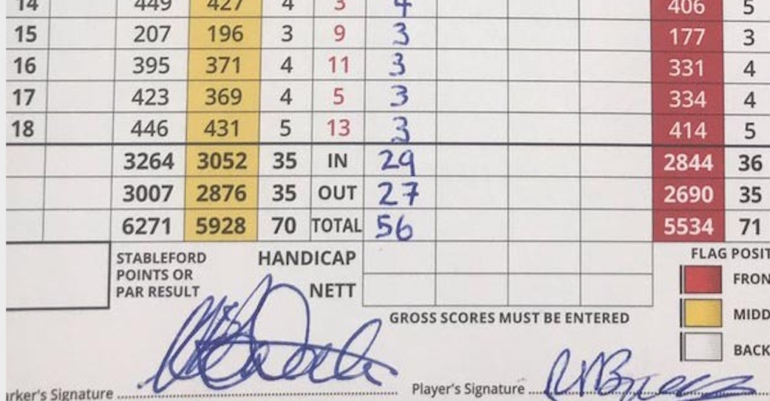 14 449 427 4 3 4 406 5
15 207 196 3 9 3 177 3
16 395 371 4 11 3 331 4
17 423 369 4 5 3 334 4
18 446 431 5 13 3 414 5
3264 3052 35 IN 29 2844 36
3007 2876 35 OUT 27 2690 35
6271 5928 70 TOTAL 56 5534 71
STABLEFORD
POINTS OR
PAR RESULT
HANDICAP
NETT
FLAG POSIT
FRON
MIDD
BACK
GROSS SCORES MUST BE ENTERED
arker's Signature
Player's Signature